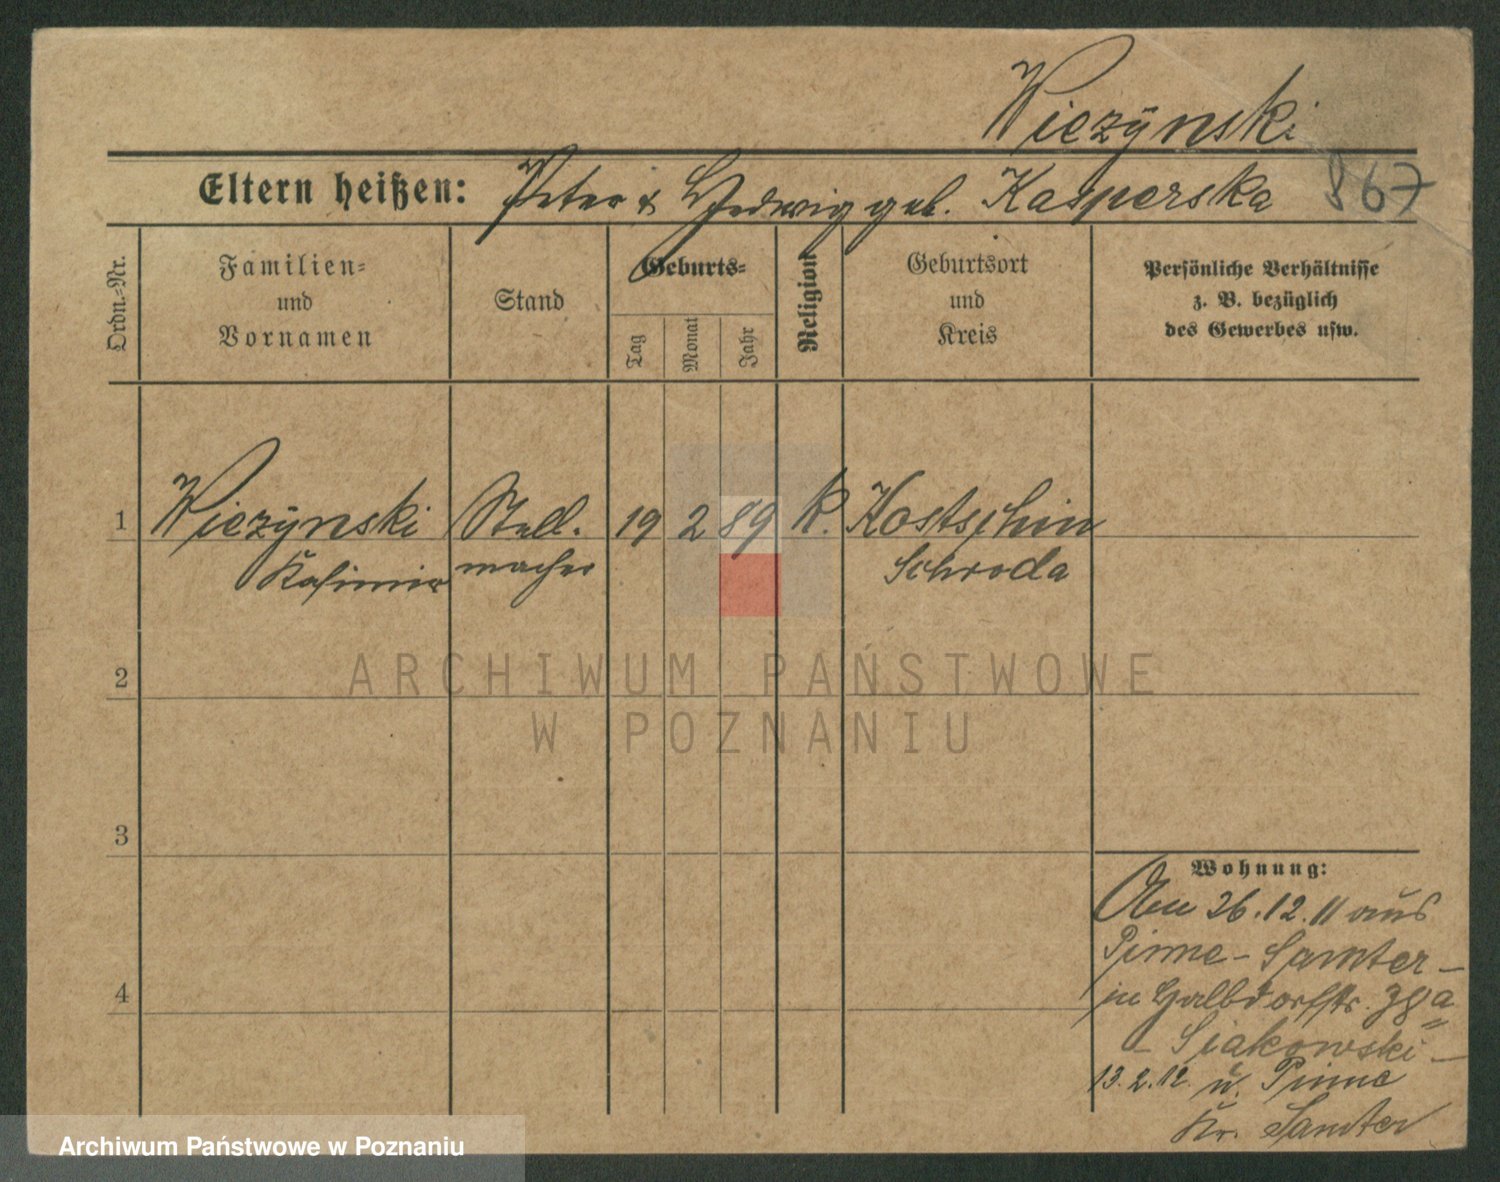 Wiezÿnski
Eltern heißen: Peter & Hedwig geb. Kasperska 867
Ordn.=Nr.
Familien= und Vornamen
Stand
Geburts=
Tag
Monat
Jahr
Religion
Geburtsort und Kreis
Persönliche Verhältnisse
z. B. bezüglich
des Gewerbes usw.
1 Wiezÿnski Stell. 19 2 89 K. Kostschin
Kasimir macher Schroda
2
3
4
Wohnung:
26.12.11 aus
Pinne - Samter -
in Halbdorfstr. a
- Siakowski -
13.2.12. n. Pinne
Kr. Samter
ARCHIWUM PAŃSTWOWE
W POZNANIU
Archiwum Państwowe w Poznaniu